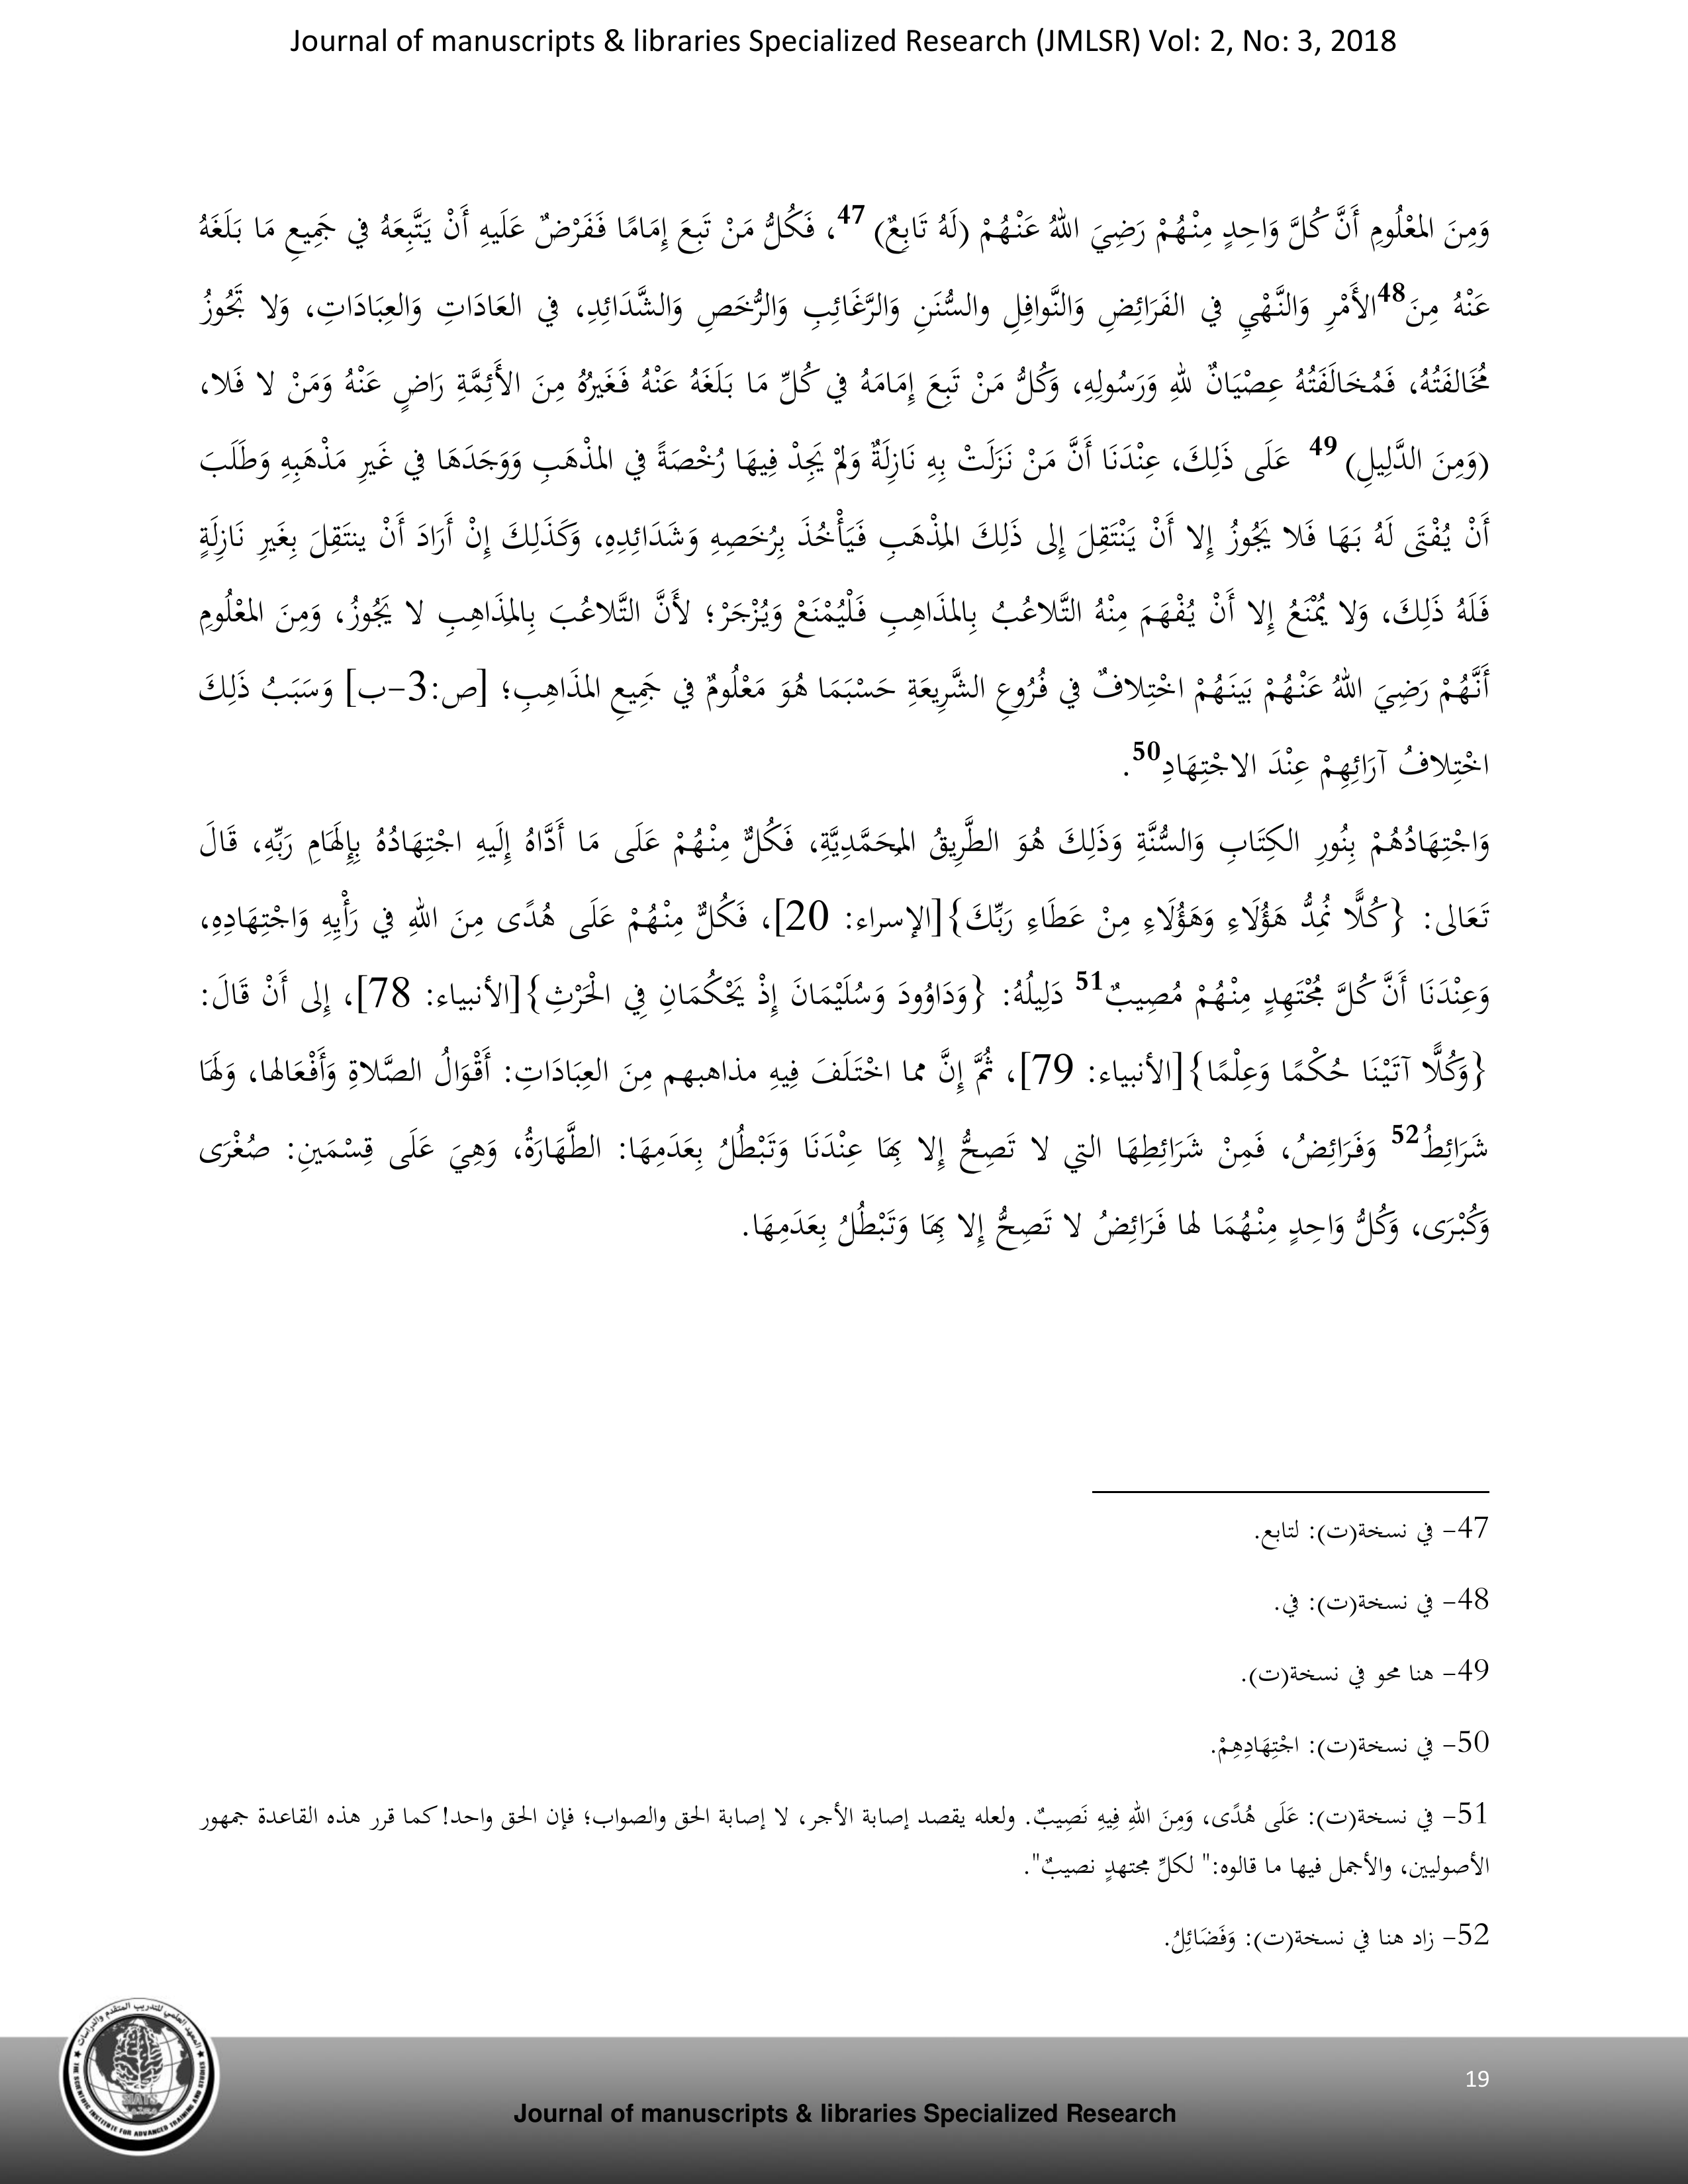 Journal of manuscripts & libraries Specialized Research (JMLSR) Vol: 2, No: 3, 2018
وَمِنَ المعْلُومِ أَنَّ كُلَّ وَاحِدٍ مِنْهُمْ رَضِيَ اللهُ عَنْهُمْ (لَهُ تَابِعٌ) 47، فَكُلُّ مَنْ تَبِعَ إِمَامًا فَفَرْضٌ عَلَيهِ أَنْ يَتَّبِعَهُ في جَمِيعِ مَا بَلَغَهُ
عَنْهُ مِنَ48الأَمْرِ وَالنَّهْيِ في الفَرَائِضِ وَالنَّوافِلِ والسُّنَنِ وَالرَّغَائِبِ وَالرُّخَصِ وَالشَّدَائِدِ، في العَادَاتِ وَالعِبَادَاتِ، وَلا تَجُوزُ
مُخَالفَتُهُ، فَمُخَالَفَتُهُ عِصْيَانٌ للهِ وَرَسُولِهِ، وَكُلُّ مَنْ تَبِعَ إِمَامَهُ في كُلِّ مَا بَلَغَهُ عَنْهُ فَغَيرُهُ مِنَ الأَئِمَّةِ رَاضٍ عَنْهُ وَمَنْ لا فَلا،
(وَمِنَ الدَّلِيلِ) 49 عَلَى ذَلِكَ، عِنْدَنَا أَنَّ مَنْ نَزَلَتْ بِهِ نَازِلَةٌ وَلَمْ يَجِدْ فِيهَا رُخْصَةً في المذْهَبِ وَوَجَدَهَا في غَيرِ مَذْهَبِهِ وَطَلَبَ
أَنْ يُفْتَى لَهُ بَهَا فَلا يَجُوزُ إِلا أَنْ يَنْتَقِلَ إِلى ذَلِكَ المِذْهَبِ فَيَأْخُذَ بِرُخَصِهِ وَشَدَائِدِهِ، وَكَذَلِكَ إِنْ أَرَادَ أَنْ ينتَقِلَ بِغَيرِ نَازِلَةٍ
فَلَهُ ذَلِكَ، وَلا يُمْنَعُ إِلا أَنْ يُفْهَمَ مِنْهُ التَّلاعُبُ بِالمذَاهِبِ فَلْيُمْنَعْ وَيُزْجَرْ؛ لأَنَّ التَّلاعُبَ بِالمِذَاهِبِ لا يَجُوزُ، وَمِنَ المعْلُومِ
أَنَّهُمْ رَضِيَ اللهُ عَنْهُمْ بَينَهُمْ اخْتِلافٌ في فُرُوعِ الشَّرِيعَةِ حَسْبَمَا هُوَ مَعْلُومٌ في جَمِيعِ المذَاهِبِ؛ [ص:3-ب] وَسَبَبُ ذَلِكَ
اخْتِلافُ آرَائِهِمْ عِنْدَ الاجْتِهَادِ50.
وَاجْتِهَادُهُمْ بِنُورِ الكِتَابِ وَالسُّنَّةِ وَذَلِكَ هُوَ الطَّرِيقُ المِحَمَّدِيَّةِ، فَكُلٌّ مِنْهُمْ عَلَى مَا أَدَّاهُ إِلَيهِ اجْتِهَادُهُ بِإِلْهَامِ رَبِّهِ، قَالَ
تَعَالى: {كُلًّا نُمِدُّ هَؤُلَاءِ وَهَؤُلَاءِ مِنْ عَطَاءِ رَبِّكَ}[الإسراء: 20]، فَكُلٌّ مِنْهُمْ عَلَى هُدًى مِنَ اللهِ في رَأْيِهِ وَاجْتِهَادِهِ،
وَعِنْدَنَا أَنَّ كُلَّ مُجْتَهِدٍ مِنْهُمْ مُصِيبٌ51 دَلِيلُهُ: {وَدَاوُودَ وَسُلَيْمَانَ إِذْ يَحْكُمَانِ فِي الْحَرْثِ}[الأنبياء: 78]، إِلى أَنْ قَالَ:
{وَكُلًّا آتَيْنَا حُكْمًا وَعِلْمًا}[الأنبياء: 79]، ثُمَّ إِنَّ مما اخْتَلَفَ فِيهِ مذاهبهم مِنَ العِبَادَاتِ: أَقْوَالُ الصَّلاةِ وَأَفْعَالها، وَلَهَا
شَرَائِطُ52 وَفَرَائِضُ، فَمِنْ شَرَائِطِهَا التي لا تَصِحُّ إِلا بِهَا عِنْدَنَا وَتَبْطُلُ بِعَدَمِهَا: الطَّهَارَةُ، وَهِيَ عَلَى قِسْمَينِ: صُغْرَى
وَكُبْرَى، وَكُلُّ وَاحِدٍ مِنْهُمَا لها فَرَائِضُ لا تَصِحُّ إِلا بِهَا وَتَبْطُلُ بِعَدَمِهَا.
47- في نسخة(ت): لتابع.
48- في نسخة(ت): في.
49- هنا محو في نسخة(ت).
50- في نسخة(ت): اجْتِهَادِهِمْ.
51- في نسخة(ت): عَلَى هُدًى، وَمِنَ اللهِ فِيهِ نَصِيبٌ. ولعله يقصد إصابة الأجر، لا إصابة الحق والصواب؛ فإن الحق واحد! كما قرر هذه القاعدة جمهور
الأصوليين، والأجمل فيها ما قالوه:" لكلِّ مجتهدٍ نصيبٌ".
52- زاد هنا في نسخة(ت): وَفَضَائِلُ.
19
Journal of manuscripts & libraries Specialized Research